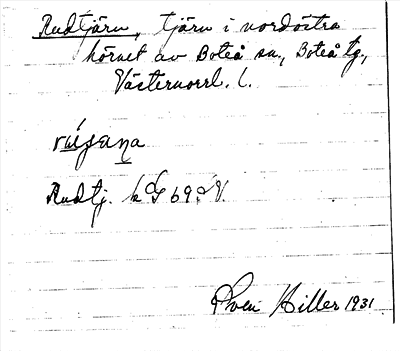 Rudtjärn, tjärn i nordöstra
hörnet av Boteå sn., Boteå tg.,
Västernorrl. l.
Rudtj. k 69 V.
Sven Hiller 1931